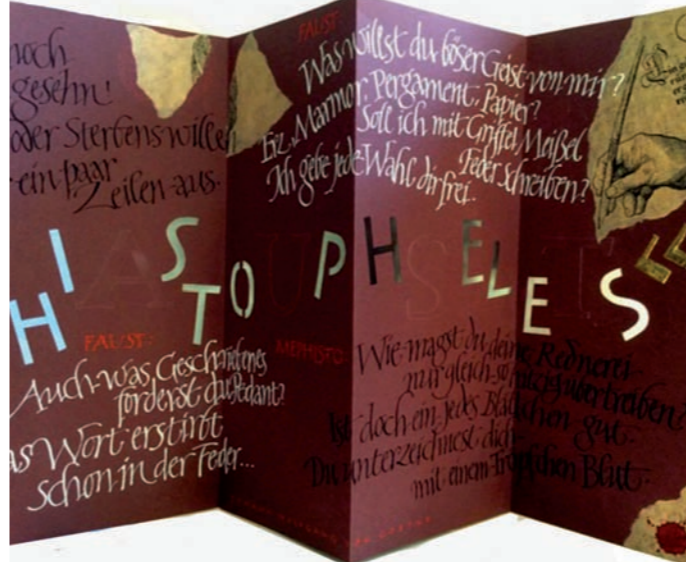 noch
gesehn!
oder Sterbens willen
ein paar
Zeilen aus.
FAUST:
Was willst du böser Geist von mir?
Erz, Marmor, Pergament, Papier?
Soll ich mit Griffel, Meißel
Feder schreiben?
Ich gebe jede Wahl dir frei.
HISTOPHELES
AUST
FAUST:
Auch was Geschriebenes
forderst du Pedant?
as Wort erstirbt
schon in der Feder...
MEPHISTO:
Wie magst du deine Rednerei
nur gleich so hitzig übertreiben?
Ist doch ein jedes Blättchen gut.
Du unterzeichnest dich
mit einem Tröpfchen Blut.
GOETHE